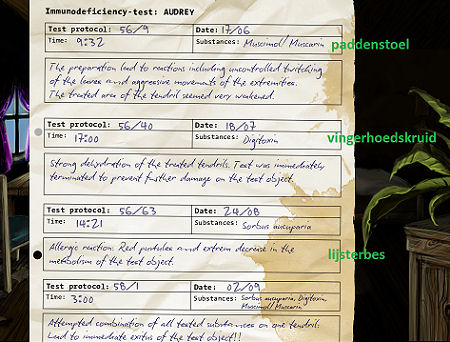 Immunodeficiency-test: AUDREY
Test protocol: 56/9 Date: 17/06
Time: 9:32 Substances: Muscimol/Muscarin
paddenstoel
The preparation lead to reactions including uncontrolled twitching
of the leaves and aggressive movements of the extremities.
The treated area of the tendril seemed very weakened.
Test protocol: 56/40 Date: 18/07
Time: 17:00 Substances: Digitoxin
vingerhoedskruid
Strong dehydration of the treated tendrils. Test was immediately
terminated to prevent further damage on the test object.
Test protocol: 56/63 Date: 24/08
Time: 14:21 Substances: Sorbus aucuparia
Allergic reaction: Red pustules and extrem decrease in the
metabolism of the test object.
lijsterbes
Test protocol: 58/1 Date: 02/09
Time: 3:00 Substances: Sorbus aucuparia, Digitoxin,
Muscimol/Muscarin
Attempted combination of all tested substances on one tendril:
Lead to immediate exitus of the test object!!